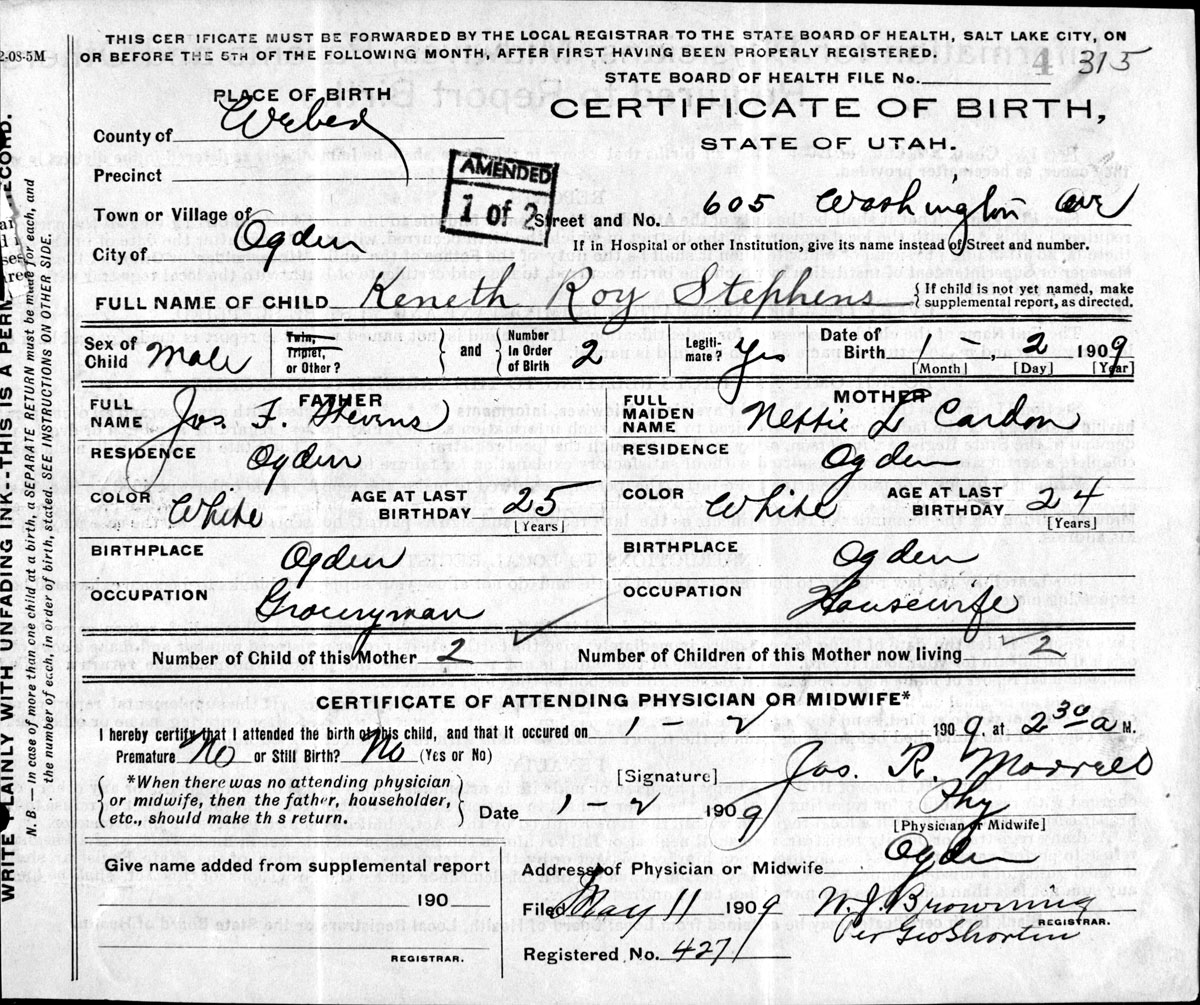 THIS CERTIFICATE MUST BE FORWARDED BY THE LOCAL REGISTRAR TO THE STATE BOARD OF HEALTH, SALT LAKE CITY, ON
2-08-5M OR BEFORE THE 5TH OF THE FOLLOWING MONTH, AFTER FIRST HAVING BEEN PROPERLY REGISTERED.
STATE BOARD OF HEALTH FILE No. 4 315
PLACE OF BIRTH
CERTIFICATE OF BIRTH,
STATE OF UTAH.
County of Weber
Precinct
AMENDED
1 of 2
Town or Village of
Street and No. 605 Washington Ave
City of Ogden
If in Hospital or other Institution, give its name instead of Street and number.
FULL NAME OF CHILD Keneth Roy Stephens { If child is not yet named, make
supplemental report, as directed.
Sex of Child Male
Twin, Triplet, or Other?
and
Number In Order of Birth 2
Legiti-mate? Yes
Date of Birth 1 - 2 1909
[Month] [Day] [Year]
FATHER
FULL NAME Jos. T.
RESIDENCE Ogden
COLOR White AGE AT LAST BIRTHDAY 25
[Years]
BIRTHPLACE Ogden
OCCUPATION Groceryman
MOTHER
FULL MAIDEN NAME Nettie L
RESIDENCE Ogden
COLOR White AGE AT LAST BIRTHDAY 24
[Years]
BIRTHPLACE Ogden
OCCUPATION Housewife
Number of Child of this Mother 2 Number of Children of this Mother now living 2
CERTIFICATE OF ATTENDING PHYSICIAN OR MIDWIFE*
I hereby certify that I attended the birth of this child, and that it occured on 1 - 2 1909, at 2 30 a M.
Premature No or Still Birth? No (Yes or No)
*When there was no attending physician
or midwife, then the father, householder,
etc., should make th s return.
[Signature] Jos. R. Morrell
Date 1 - 2 1909
Phy
[Physician or Midwife]
Give name added from supplemental report
190
REGISTRAR.
Address of Physician or Midwife Ogden
Filed May 11 1909 W. J. Browning
REGISTRAR.
Per Geo Shorten
Registered No. 427
WRITE PLAINLY WITH UNFADING INK--THIS IS A PERM RECORD.
N. B.—In case of more than one child at a birth, a SEPARATE RETURN must be made for each, and
the number of each, in order of birth, stated. SEE INSTRUCTIONS ON OTHER SIDE.